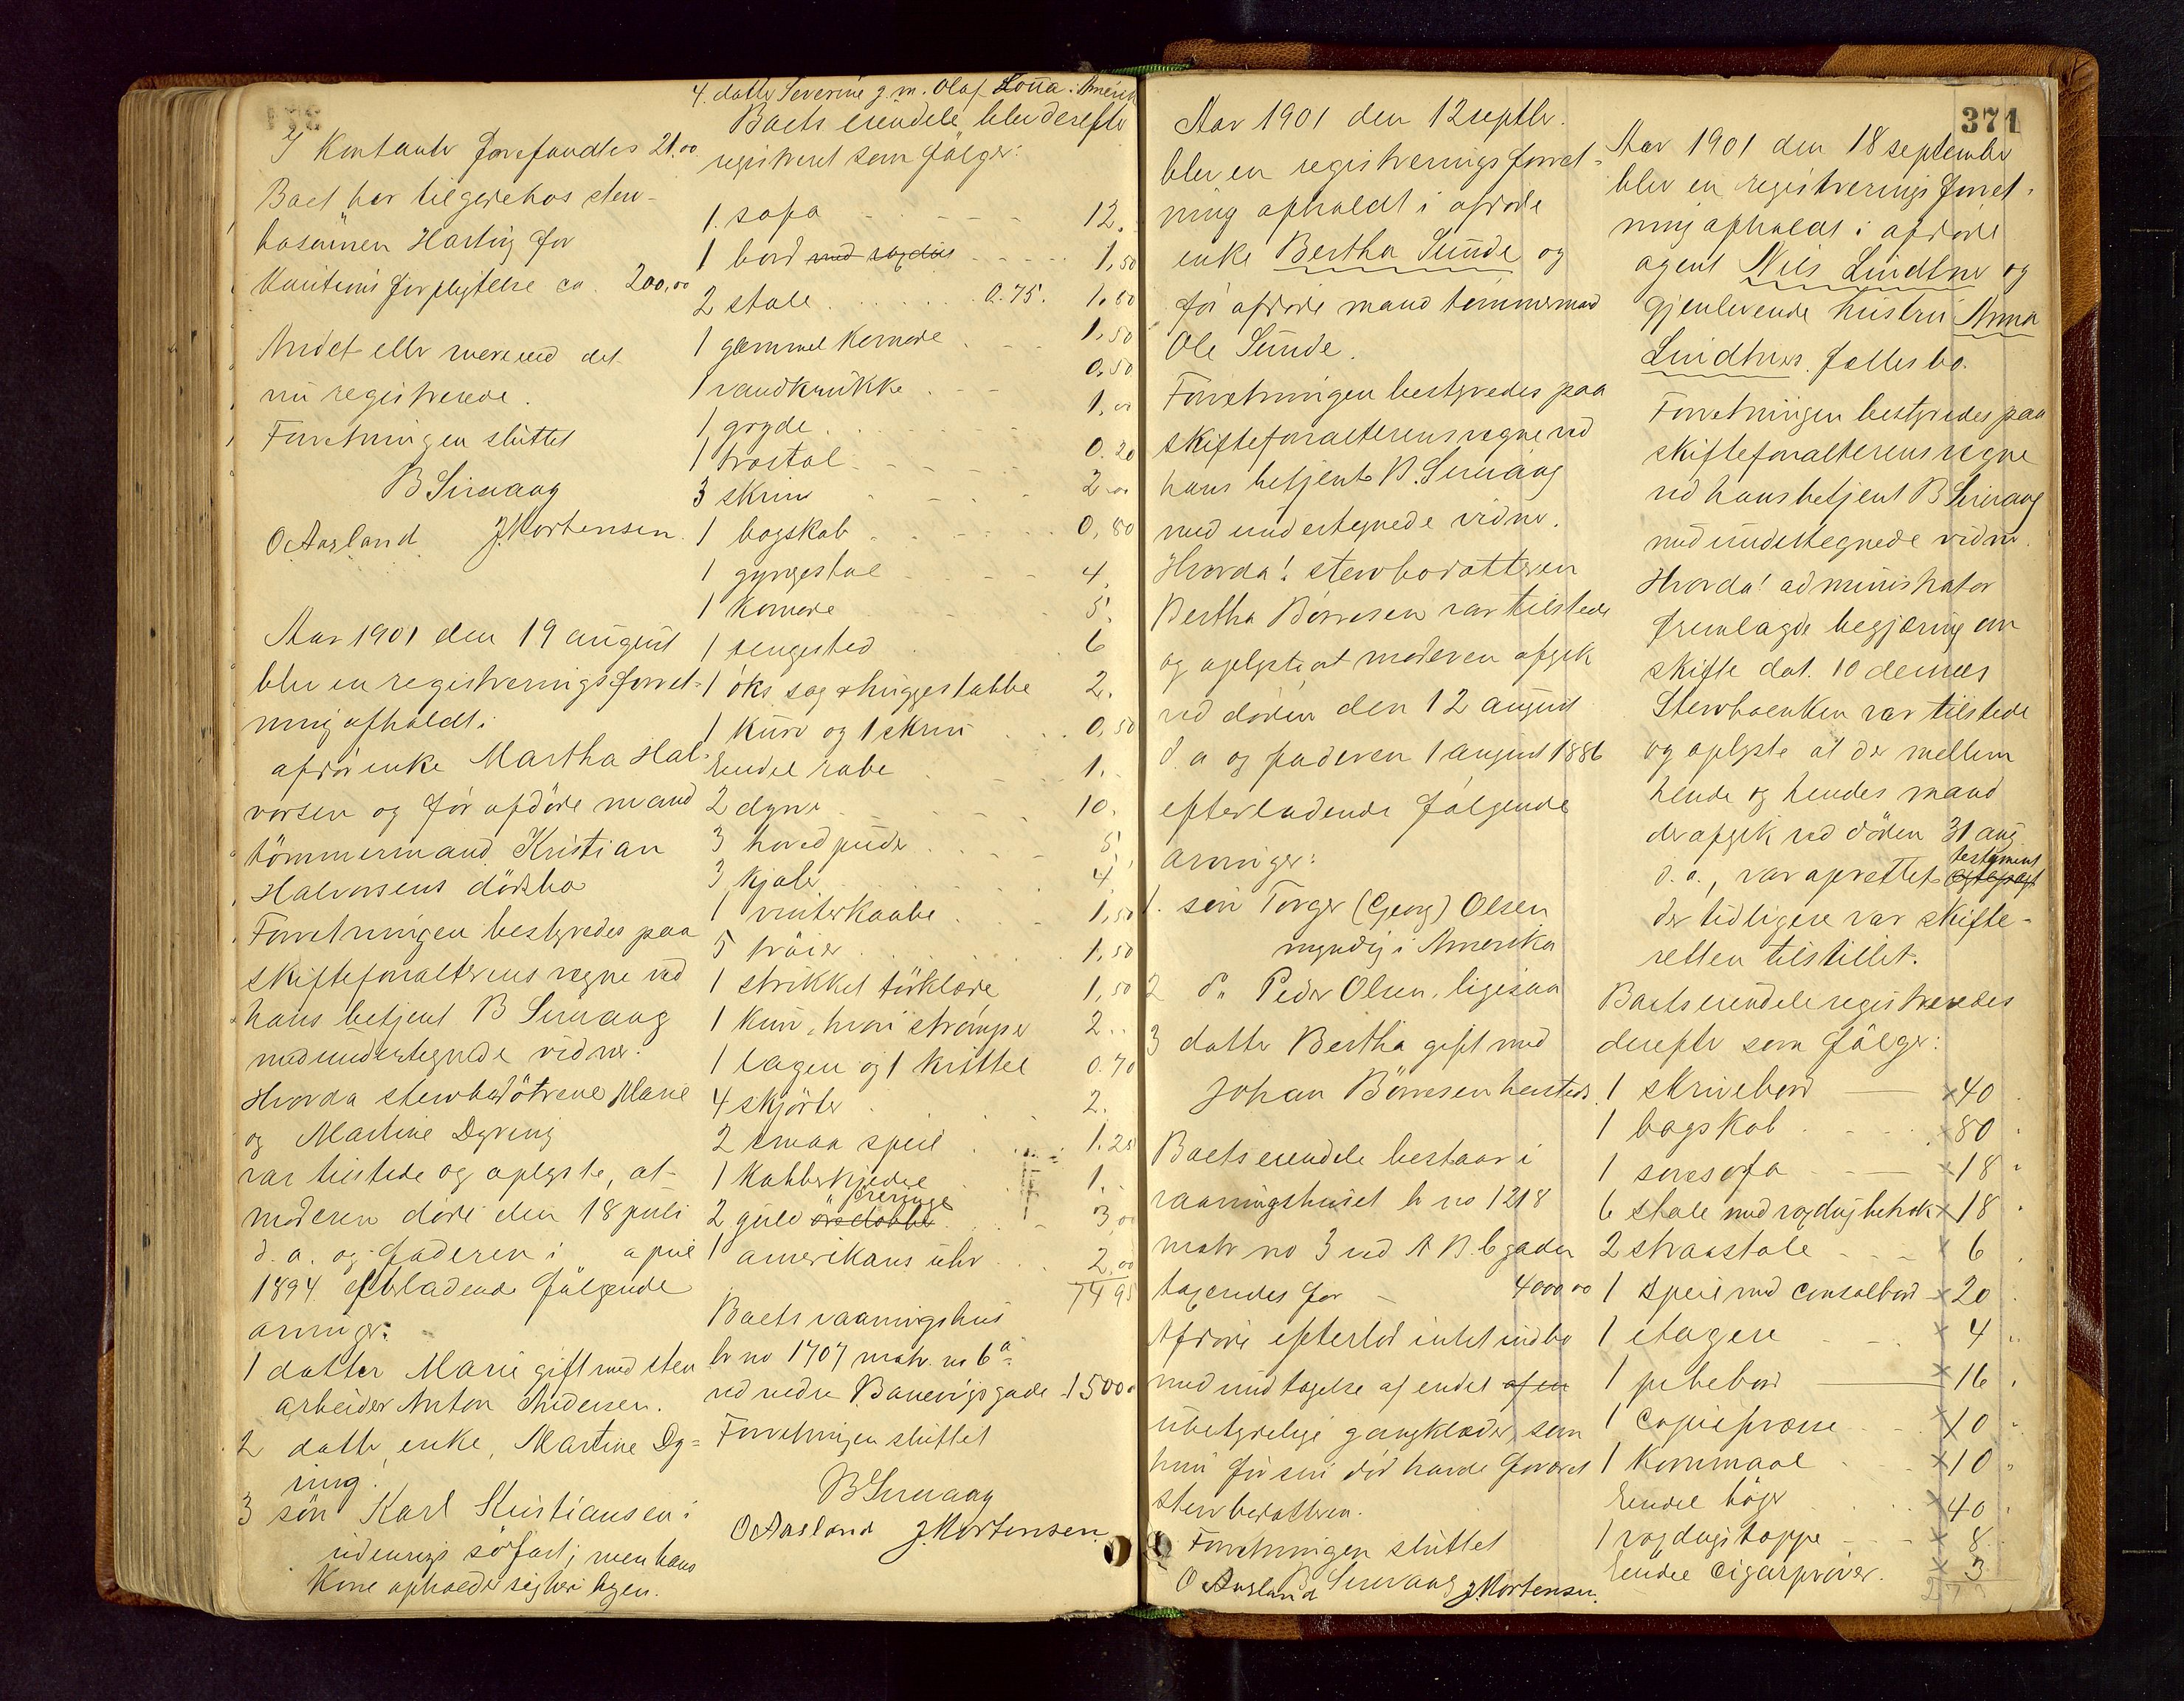 I Kontanter forefandtes 21,00
Boet har tilgode hos sterv-
bosönnen Hartvig for
Kautionsforpligtelse ca. 200,00
Andet eller mere end det
nu registrerede.
Forretningen sluttet
B Sirevaag
O Aasland J. Mortensen.
Aar 1901 den 19 august
blev en registreringsforret-
ning afholdt i
afdöde enke Martha Hal-
vorsen og för afdöde mand
tömmermand Kristian
Halvorsens dödsbo
Forretningen bestyredes paa
skifteforvalterens vegne ved
hans betjent B Sirevaag
med undertegnede vidner.
Hvorda stervbodötrene Marie
og Martine Dyring
var tilstede og oplyste, at
moderen döde den 18 juli
d. a. og faderen i april
1894 efterladende fölgende
arvinger:
1 datter Marie gift med sten
arbeider Anton Andersen.
2 datter, enke, Martine Dy-
ring.
3 sön Karl Kristiansen i
udenrigs söfart; men hans
Kone opholder sig her i byen.
4. datter Severine g. m. Olaf Lona i Amerik
Boets eiendele blev derefter
registreret som fölger:
1 sofa 12.
1 bord med voxdug 1,50
2 stole 0.75. 1.50
1 gammel Komode 1,50
1 vandkrukke 0,50
1 gryde 1,00
1 træstol 0.20
3 skrin 2.00
1 bogskab 0,80
1 gyngestol 4.
1 Komode 5.
1 sengested 6
1 öks sag & huggestabbe 2.
1 Kurv og 1 skrin 0,50
Endel 1.
2 dyner 10.
3 hovedpuder 5.
3 Kjoler 4.
1 vinterkaabe 1,50
5 tröier 1,50
1 strikket törklæde 1,50
1 Kurv, hvori strömper 2..
1 lagen og 1 Kittel 0.70
4 skjörter 2.
2 smaa speil 1.25
1 Kobberkjedel 1.
öreringe
2 guld öredobbe 3,00
1 amerikansk uhr 2,00
74 95
Boets vaaningshus
br no 1707 matr. no 6a
ved nedre Banevigsgade 1500
Forretningen sluttet
B Sirevaag
O Aasland J. Mortensen.
Aar 1901 den 12 septbr.
blev en registreringsforret-
ning afholdt i afdöde
enke Bertha Sunde og
för afdöde mand tömmermand
Ole Sunde.
Forretningen bestyredes paa
skifteforvalterens vegne ved
hans betjent B. Sirevaag
med undertegnede vidner.
Hvorda! stervbodatteren
Bertha Börresen var tilstede
og oplyste at moderen afgik
ved döden den 12 august
d. a og faderen 1 august 1886
efterladende fölgende
arvinger:
1. sön Torger (Georg) Olsen
myndig i Amerika
2 do Peder Olsen, ligesaa
3 datter Bertha gift med
Johan Börresen hersteds.
Boets eiendele bestaar i
vaaningshuset br no 1218
matr no 3 ved A B. C gaden
taxeredes for 4000 00
Afdöde efterlod intet indbo
med undtagelse af endel af en
ubetydelige gangklæder, som
hun för sin död havde foræret
stervbodatteren.
Forretningen sluttet
O Aasland B Sirevaag J Mortensen.
371
Aar 1901 den 18 september
blev en registreringsforret-
ning afholdt i afdöde
agent Nils Lindtner og
gjenlevende hustru Anna
Lindtners fællesbo.
Forretningen bestyredes paa
skifteforvalterens vegne
ved hans betjent B Sirevaag
med undertegnede vidner.
Hvorda! administrator
fremlagde begjæring om
skifte dat. 10 dennes
Stervboenken var tilstede
og oplyste at der mellem
hende og hendes mand
der afgik ved döden 31 aug
testament
d. a., var oprettet
der tidligere var skifte-
retten tilstillet.
Boets eiendele registreredes
derefter som fölger:
1 skrivebord ×40
1 bogskab ×80
1 sovesofa ×18
6 stole med voxdugbetræk ×18
2 straastole × 6
1 speil med consolbord ×20
1 etagere × 4
1 pibebord ×16
1 copiepresse ×10
1 Kornmaal ×10
Endel böger ×40
1 voxdugstæppe × 8
Endel cigarpröver. × 3